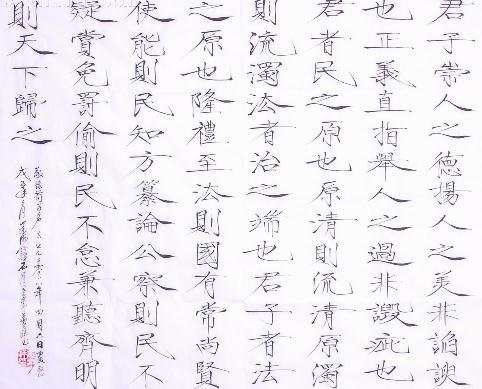 君子崇人之德揚人之美非諂諛
也正義直指舉人之過非譭疵也
君者民之原也原清則流清原濁
則流濁法者治之端也君子者法
之原也隆禮至法則國有常尚賢
使能則民知方纂論公察則民不
疑賞免罰偷則民不怠兼聽齊明
則天下歸之